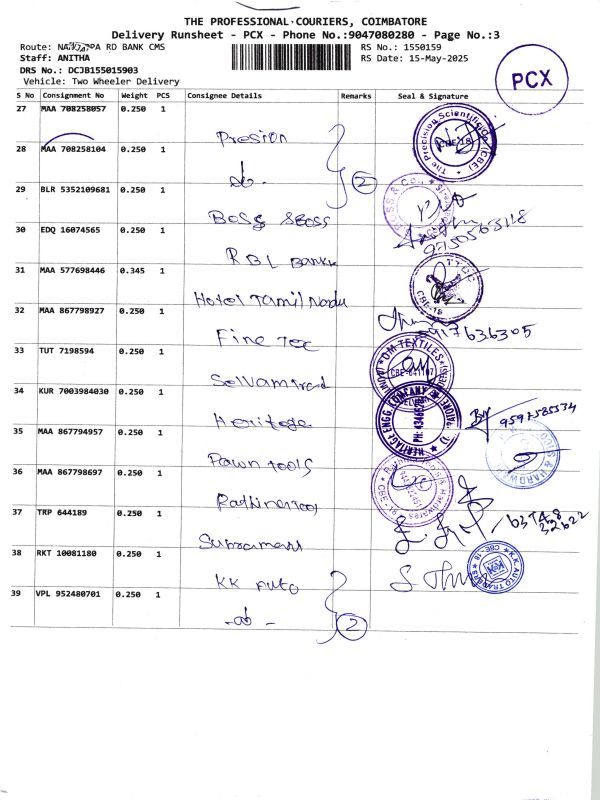 THE PROFESSIONAL COURIERS, COIMBATORE
Delivery Runsheet - PCX - Phone No.:9047080280 - Page No.:3
Route: PA RD BANK CMS
RS No.: 1550159
Staff: ANITHA
RS Date: 15-May-2025
DRS No.: DCJB155015903
Vehicle: Two Wheeler Delivery
PCX
S No Consignment No Weight PCS Consignee Details Remarks Seal & Signature
27 MAA 708258057 0.250 1 Presion
28 MAA 708258104 0.250 1 do. 2
29 BLR 5352109681 0.250 1 Boss &Boss
9750563118
30 EDQ 16074565 0.250 1 RBL Bank
31 MAA 577698446 0.345 1 Hotel Tamil Nadu
CBE-18
32 MAA 867798927 0.250 1 Fine Tec
917636305
33 TUT 7198594 0.250 1 Selvam
OM TEXTILES
34 KUR 7003984030 0.250 1 Heritage
HERITAGE ENGG. COMPANY
9597585534
35 MAA 867794957 0.250 1 Pawn tools
36 MAA 867798697 0.250 1
37 TRP 644189 0.250 1 Subramani
38 RKT 10081180 0.250 1 KK Auto
K.K. AUTO
CBE-18
39 VPL 952480701 0.250 1 -do- 2